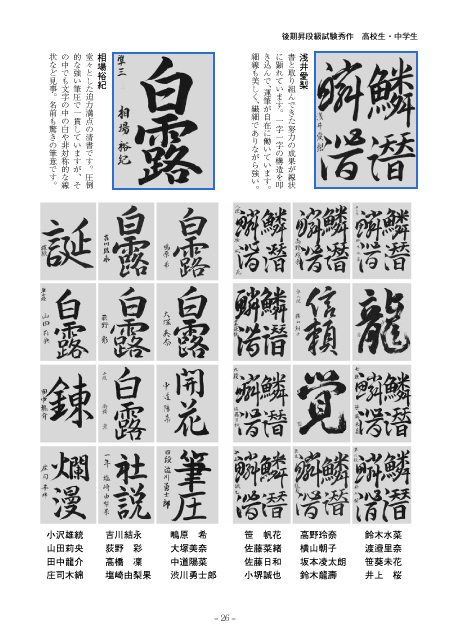 後期昇段級試験秀作　高校生・中学生
鱗潜
鱗潜
浅井愛梨
書と取り組んできた努力の成果が線状
に顕れています。一字一字の構造を叩
き込んで、運筆が自在に働いています。
細線も美しく、繊細でありながら強い。
白露
準三
相場裕紀
相場裕紀
堂々とした迫力満点の清書です。圧倒
的な強い筆圧で一貫していますが、そ
の中でも文字の中の白や非対称的な線
状など見事。名前も驚きの筆意です。
鱗潜
鱗潜
鱗潜
龍
信頼
鱗潜
鱗潜
覚
鱗潜
鱗潜
鱗潜
鱗潜
白露
白露
誕
白露
白露
白露
開花
白露
錬
筆圧
社説
爛漫
鈴木水菜
渡邉里奈
笹葵未花
井上　桜
高野玲奈
横山朝子
坂本凌太朗
鈴木龍壽
笹　帆花
佐藤菜緒
佐藤日和
小堺誠也
鴫原　希
大塚美奈
中道陽菜
渋川勇士郎
吉川結永
荻野　彩
高橋　凜
塩崎由梨果
小沢雄統
山田莉央
田中龍介
庄司木綿
– 26 –